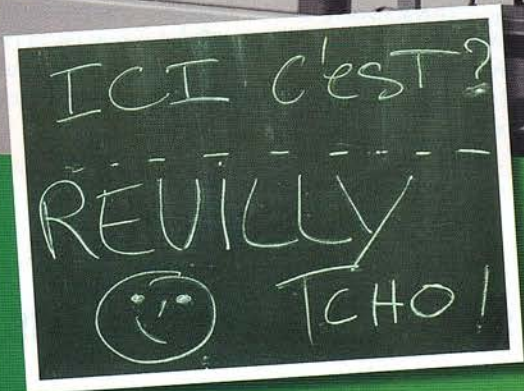 ICI C'EST?
REUILLY
TCHO!